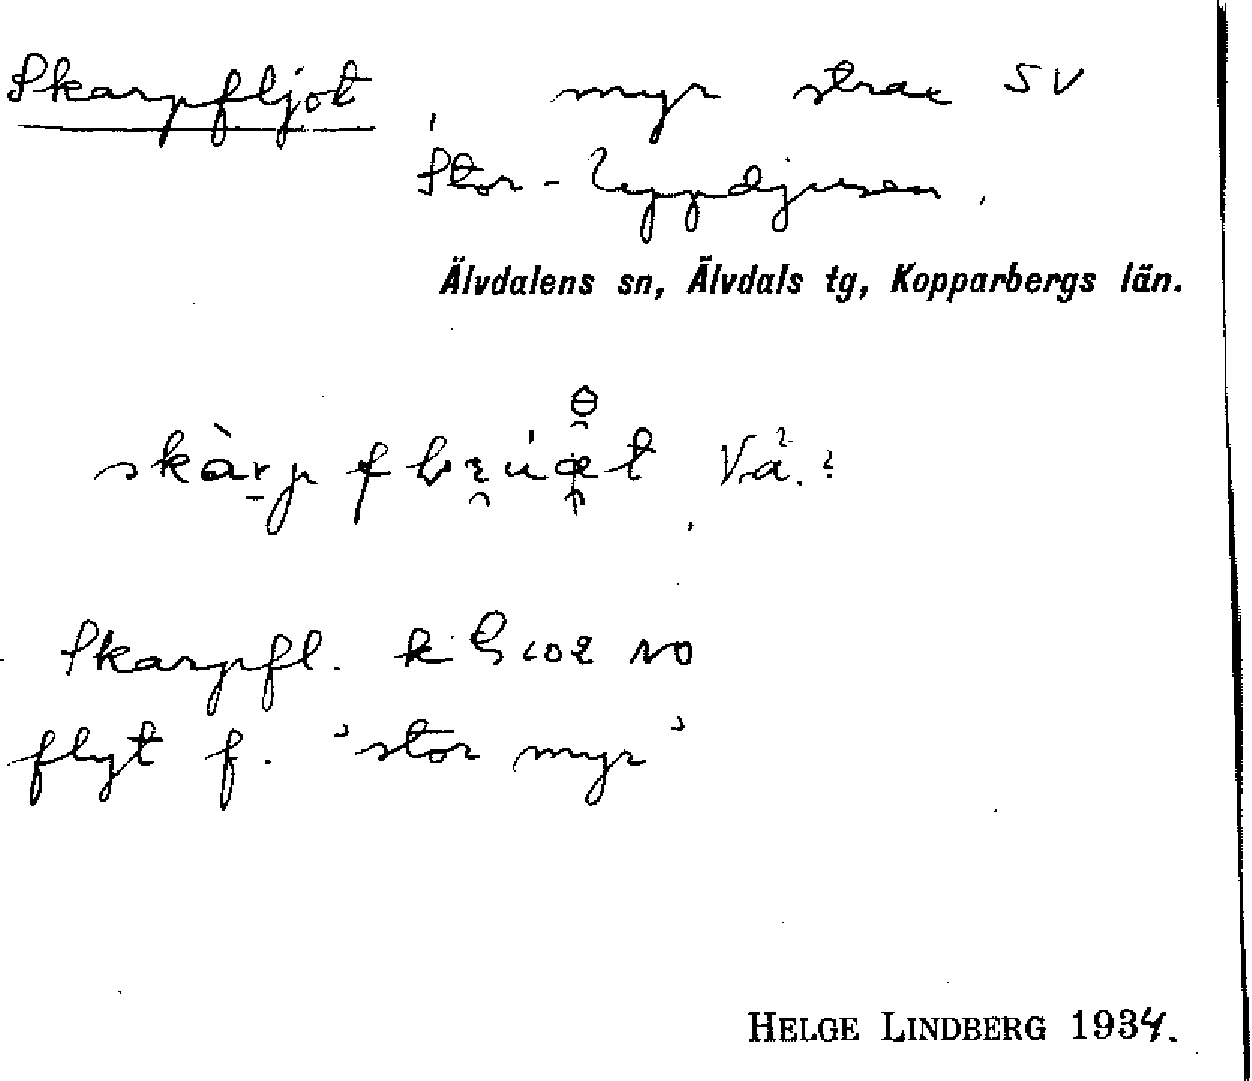 Skarpfljot, myr strax SV
Stor-Uppdjusen.
Älvdalens sn, Älvdals tg, Kopparbergs län.
Vå.
Skarpfl. k NO
flyt f. 'stor myr'
HELGE LINDBERG 1934.